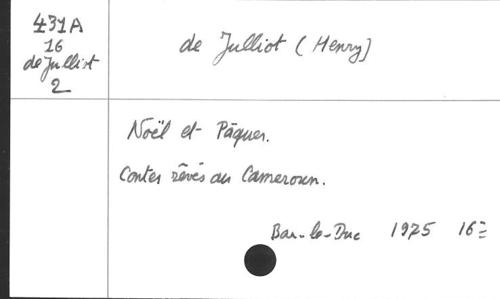 431A
16
de Julliot
2
de Julliot (Henry)
Noël et Pâques.
Contes rêvés au Cameroun.
Bar-le-Duc 1925 16=